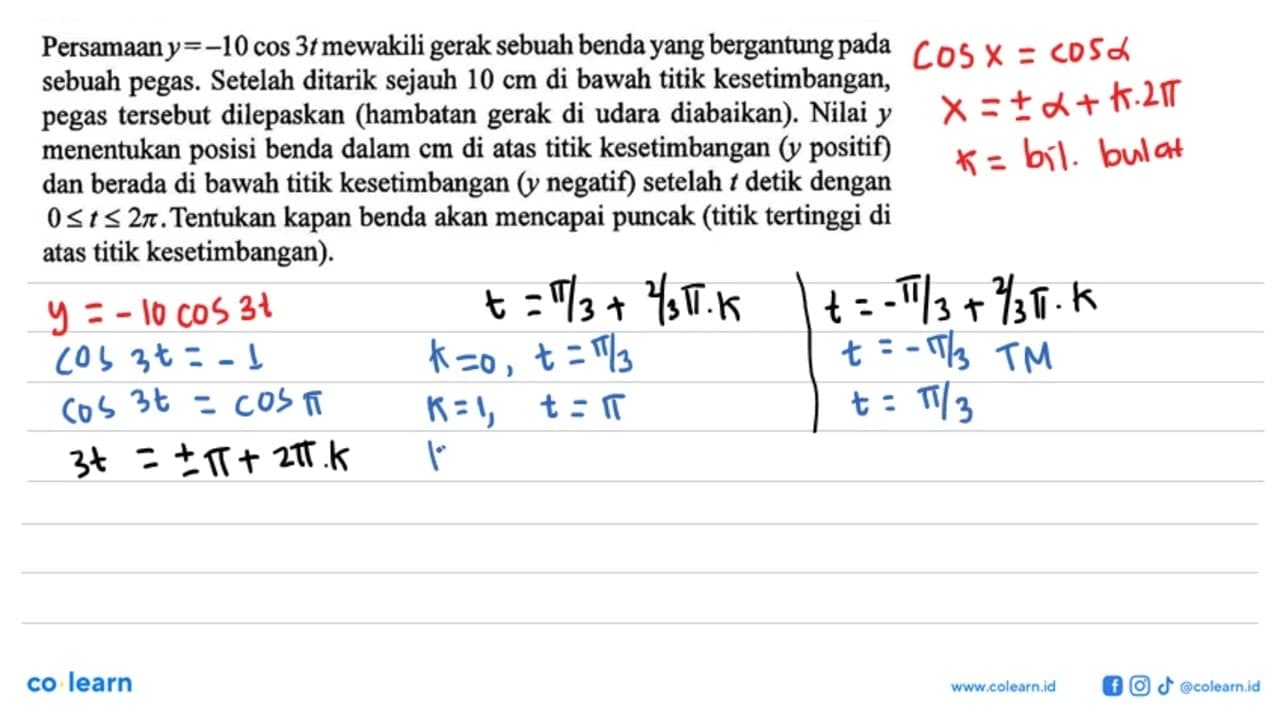 Persamaan y=–10 cos 3t mewakili gerak sebuah benda yang bergantung pada
sebuah pegas. Setelah ditarik sejauh 10 cm di bawah titik kesetimbangan,
pegas tersebut dilepaskan (hambatan gerak di udara diabaikan). Nilai y
menentukan posisi benda dalam cm di atas titik kesetimbangan (y positif)
dan berada di bawah titik kesetimbangan (y negatif) setelah t detik dengan
0 ≤ t ≤ 2π. Tentukan kapan benda akan mencapai puncak (titik tertinggi di
atas titik kesetimbangan).
cos x = cos α
x = ± α + k.2π
k = bil. bulat
y = -10 cos 3t
cos 3t = -1
cos 3t = cos π
3t = ±π + 2π.k
t = π/3 + 2/3π.k
k=0, t = π/3
k=1, t = π
k
t = -π/3 + 2/3π.k
t = -π/3 TM
t = π/3
co learn
www.colearn.id
@colearn.id